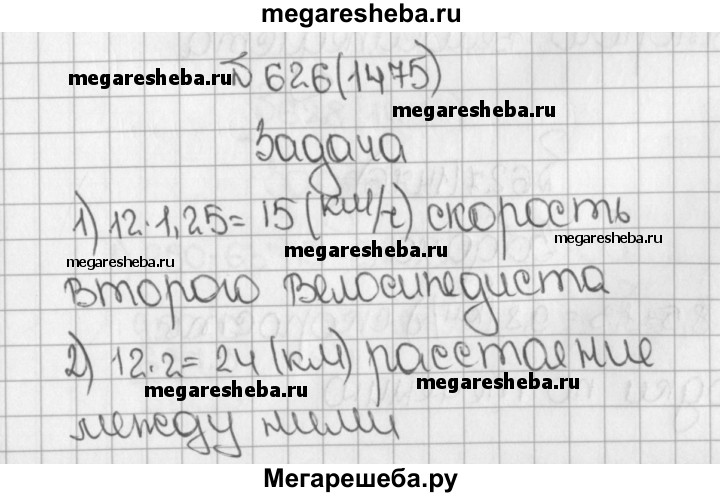 megaresheba.ru
№ 626(1475)
megaresheba.ru
megaresheba.ru
Задача
1) 12·1,25= 15 (км/ч) скорость
megaresheba.ru
megaresheba.ru
megaresheba.ru
второго велосипедиста
2) 12·2= 24 (км) расстаение
megaresheba.ru
megaresheba.ru
между ними
Мегарешеба.ру